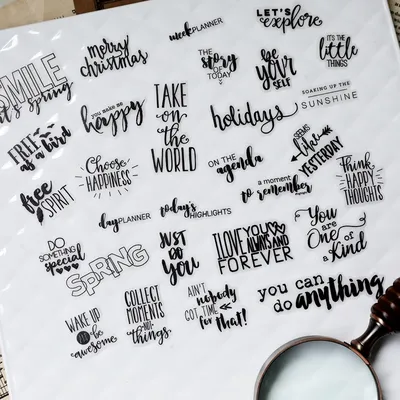 LET'S
explore
week PLANNER
merry
christmas
THE
story
OF
TODAY
be
YOUR
SELF
IT'S THE
little
THINGS
SMILE
it's spring
you make me
happy
TAKE
ON
the
WORLD
holidays
SOAKING UP THE
SUNSHINE
FREE
as a bird
Choose
HAPPINESS
ON THE
agenda
seems
like
YESTERDAY
Think
HAPPY
THOUGHTS
free
SPIRIT
a moment
to remember
day PLANNER
today's
HIGHLIGHTS
You
are
One of
a Kind
DO
SOMETHING
special
SPRING
JUST
do
YOU
I LOVE YOU
ALWAYS AND
FOREVER
WAKE UP
& be
awesome
COLLECT
MOMENTS
NOT
things
AIN'T
nobody
GOT TIME
for that!
you can
do anything